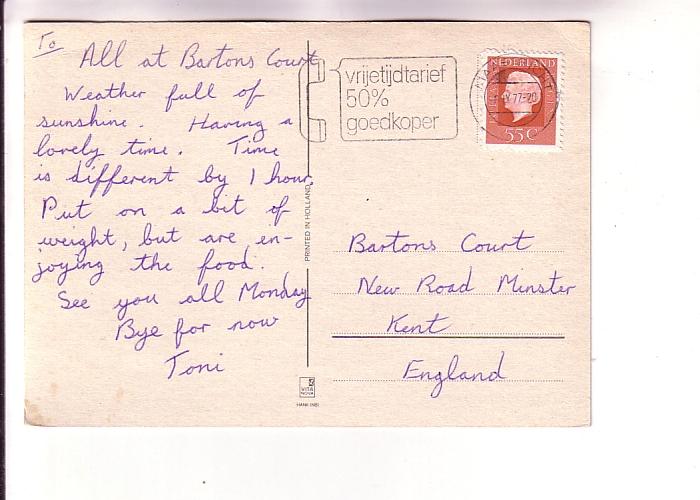 To
All at Bartons Court
Weather full of
sunshine. Having a
lovely time. Time
is different by 1 hour.
Put on a bit of
weight, but are en-
joying the food.
See you all Monday
Bye for now
Toni
vrijetijdtarief
50%
goedkoper
NEDERLAND
77-20
55c
PRINTED IN HOLLAND
Bartons Court
New Road Minster
Kent
England
VITA
NOVA